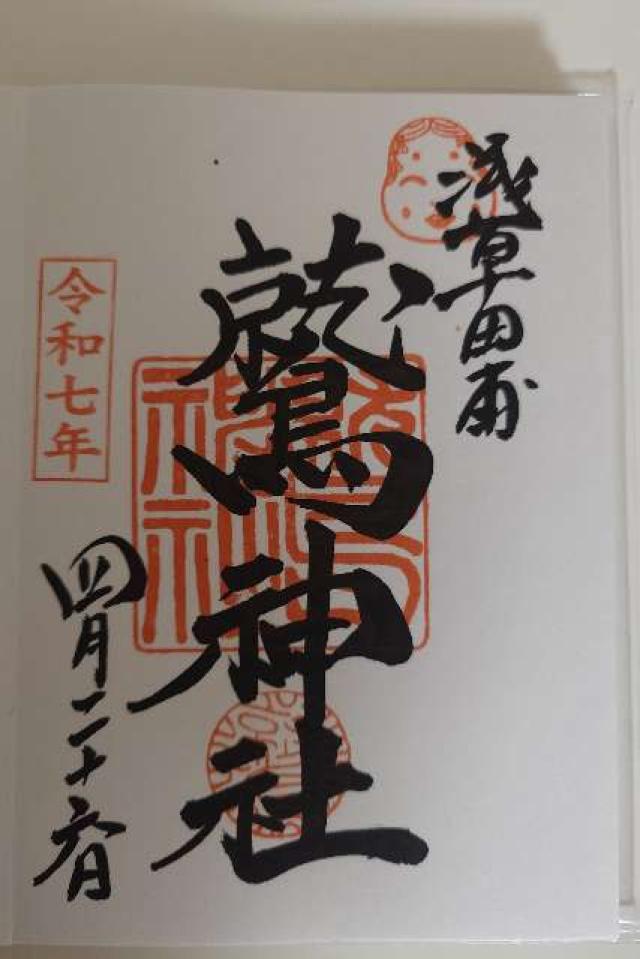 浅草田甫
鷲神社
令和七年
四月二十六日